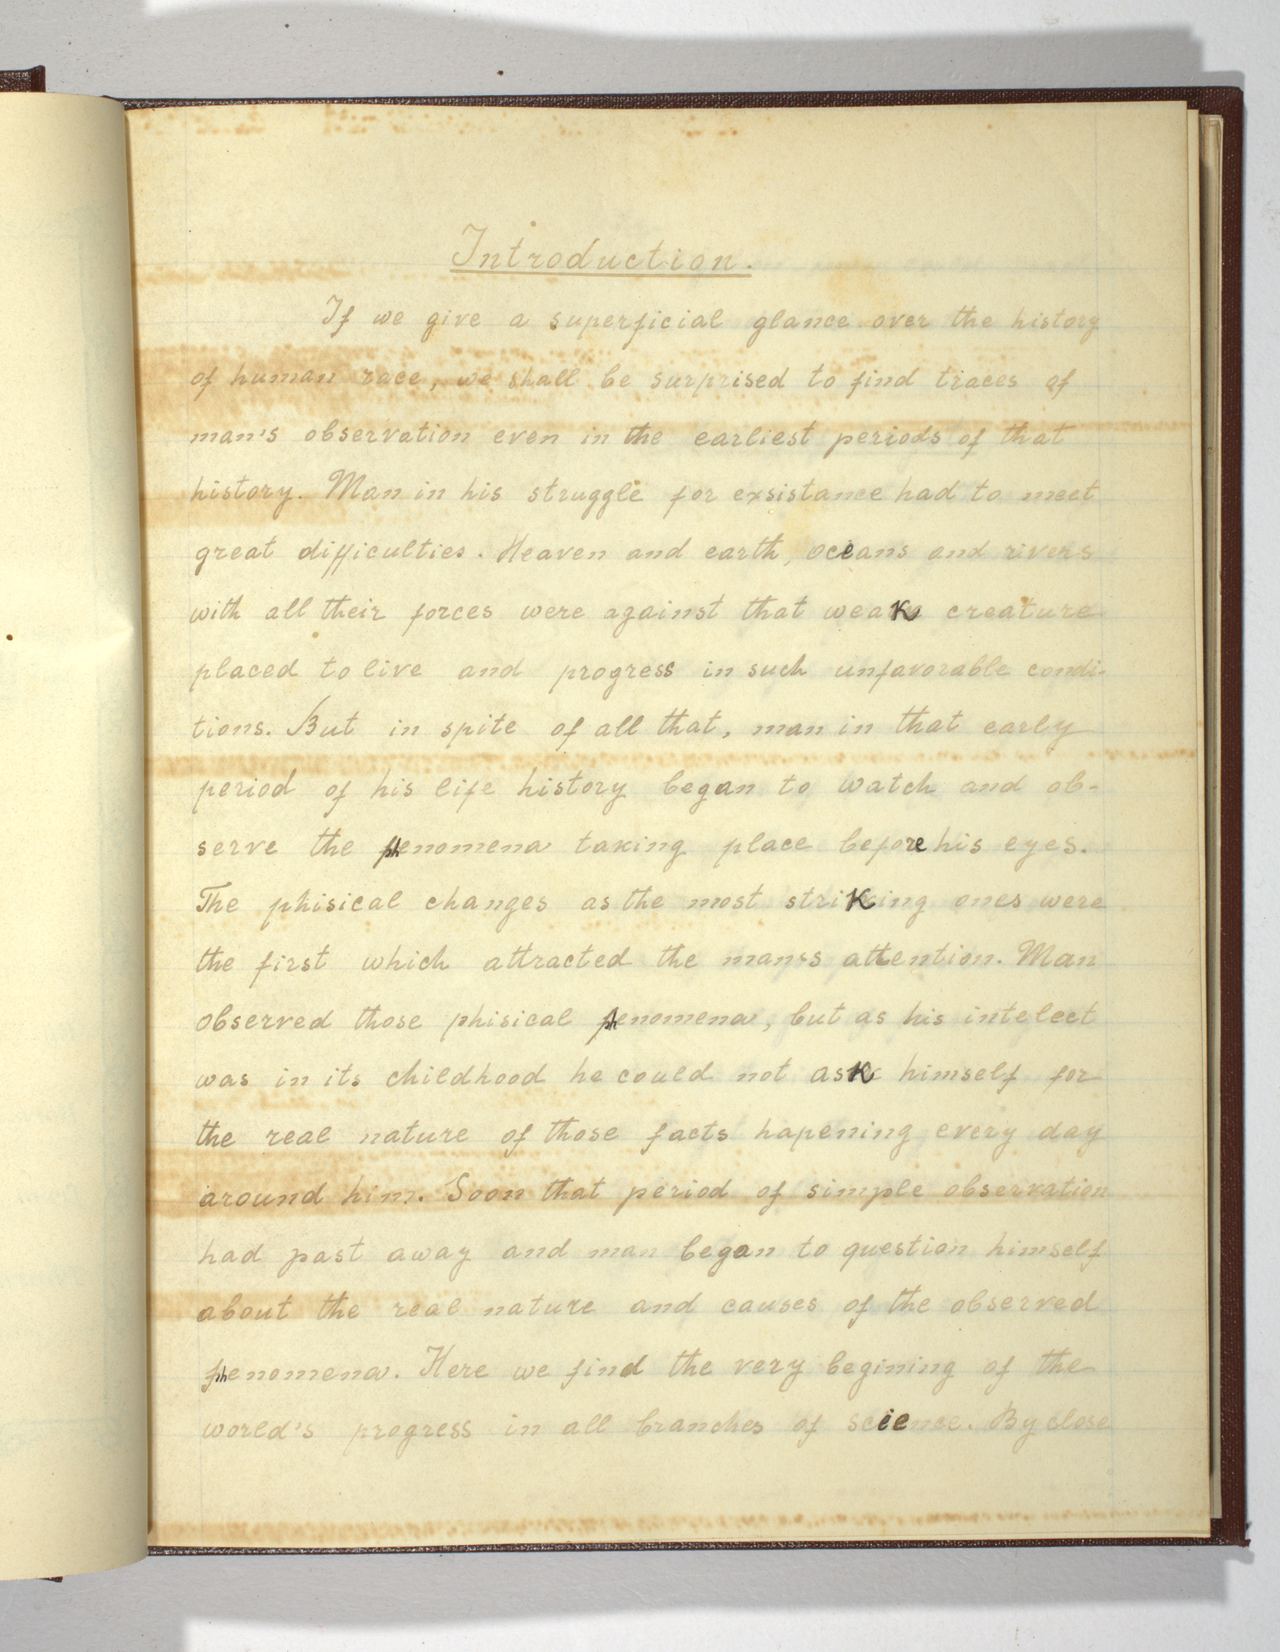 Introduction.
If we give a superficial glance over the history
of human race, we shall be surprised to find traces of
man's observation even in the earliest periods of that
history. Man in his struggle for exsistance had to meet
great difficulties. Heaven and earth, oceans and rivers
with all their forces were against that weak creature
placed to live and progress in such unfavorable condi-
tions. But in spite of all that, man in that early
period of his life history began to watch and ob-
serve the phenomena taking place before his eyes.
The phisical changes as the most striking ones were
the first which attracted the man's attention. Man
observed those phisical phenomena, but as his intelect
was in its childhood he could not ask himself for
the real nature of those facts hapening every day
around him. Soon that period of simple observation
had past away and man began to question himself
about the real nature and causes of the observed
phenomena. Here we find the very begining of the
world's progress in all branches of science. By close